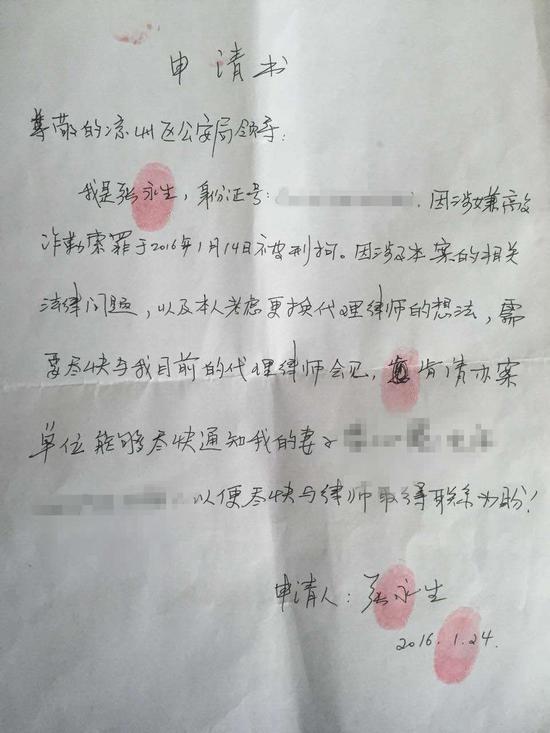 申请书
尊敬的凉州区公安局领导：
我是张永生，身份证号：      ，因涉嫌敲
诈勒索罪于2016年1月14日被刑拘。因涉及本案的相关
法律问题，以及本人考虑更换代理律师的想法，需
要尽快与我目前的代理律师会见，肯请办案
单位能够尽快通知我的妻子
以便尽快与律师取得联系为盼！
申请人：张永生
2016.1.24.